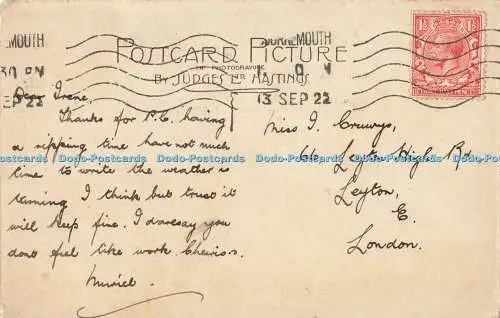 POSTCARD PICTURE
IN PHOTOGRAVURE
BY JUDGES LTD HASTINGS.
BOURNEMOUTH
13 SEP 22
MOUTH
30 PM
SEP 22
Dear Irene,
Thanks for P.C. having
a ripping time have not much
time to write the weather is
turning I think but trust it
will keep fine. I daresay you
dont feel like work. Cheerio
Muriel
Miss I. Cruwys,
Leyton High Rd
Leyton,
E.
London.
Dodo-Postcards Dodo-Postcards Dodo-Postcards Dodo-Postcards Dodo-Postcards